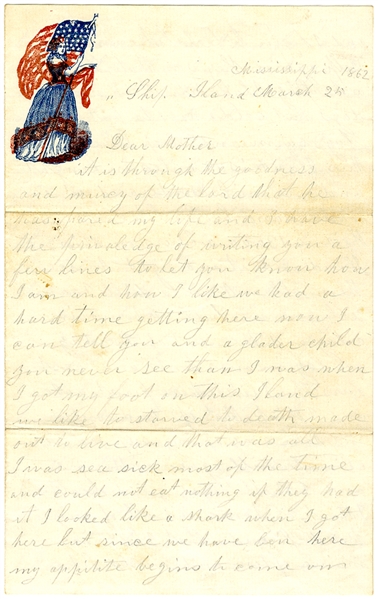 Mississippi 1862
" Ship Iland March 25
Dear Mother
it is through the goodness
and murcy of the lord that he
has spared my life and I have
the privaledge of writing you a
few lines to let you know how
I am and how I like we had a
hard time getting here now I
can tell you and a glader child
you never see than I was when
I got my foot on this Iland
we like to starved to death made
out to live and that was all
I was sea sick most of the time
and could not eat nothing if they had
it I looked like a shark when I got
here but since we have ben here
my appitite begins to come on